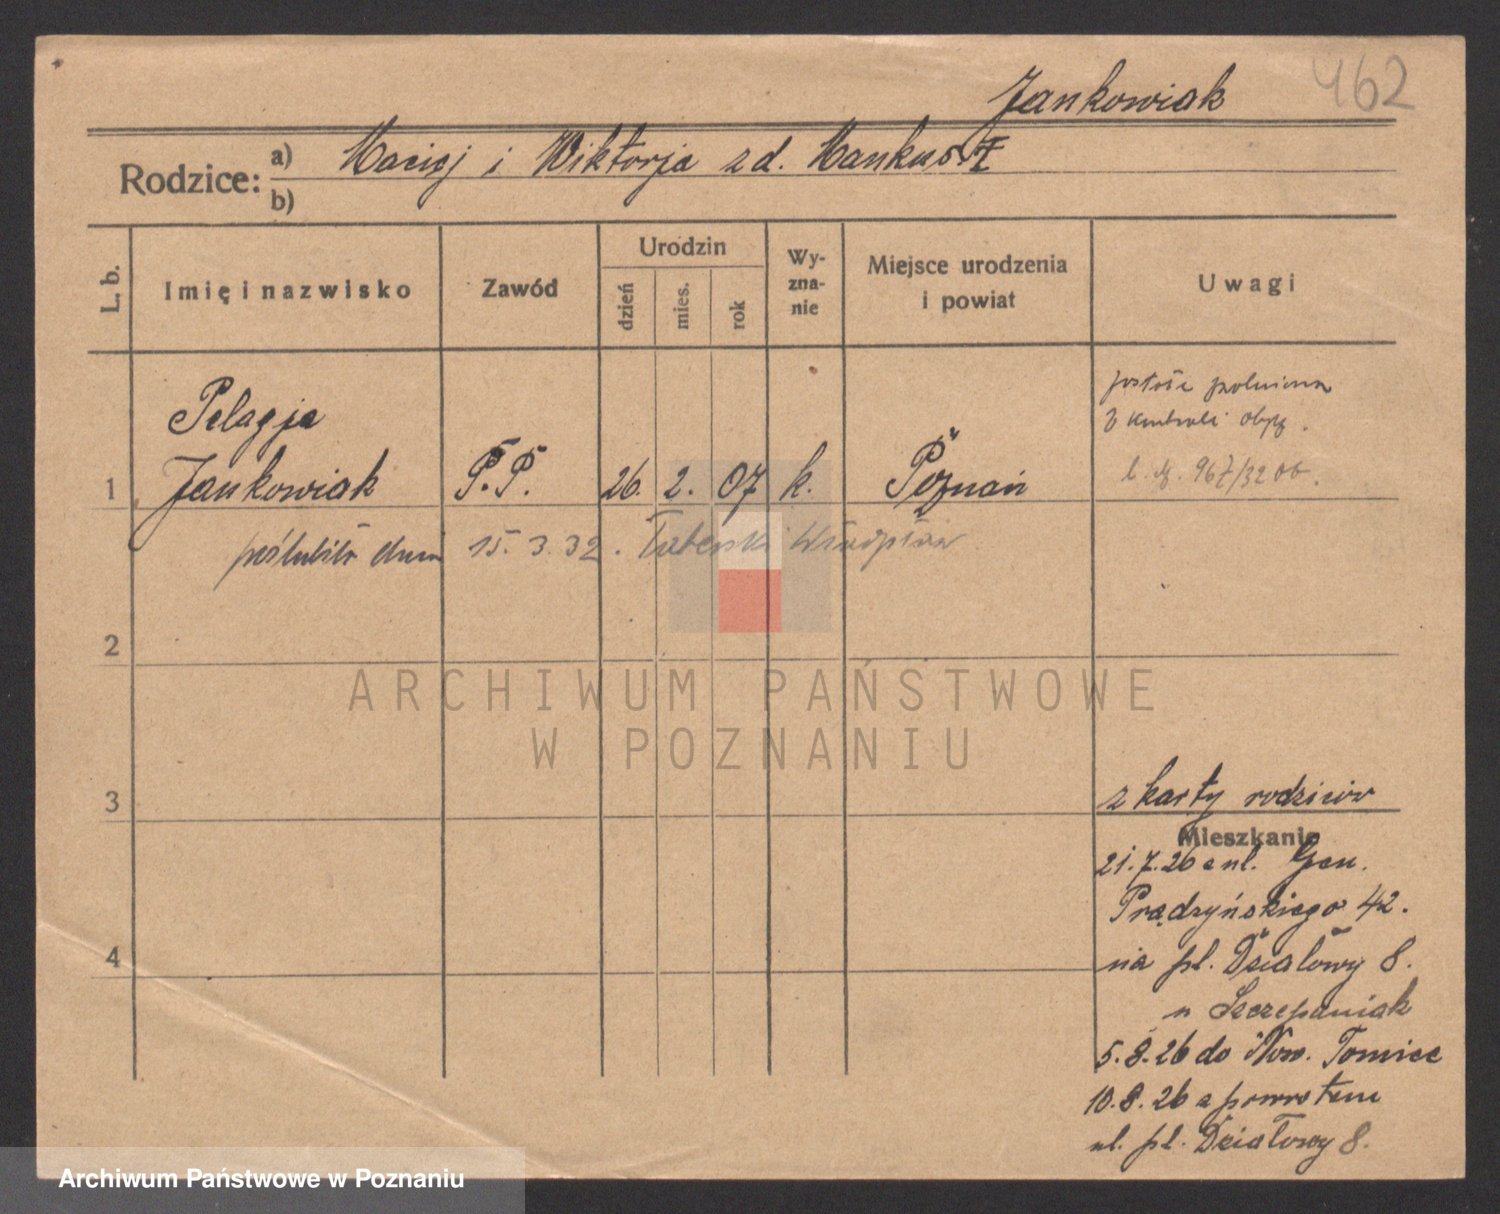 462
Jankowiak
Rodzice: a) Maciej i Wiktorja zd.
b)
L. b.
Imię i nazwisko
Zawód
Urodzin
dzień
mies.
rok
Wy-
zna-
nie
Miejsce urodzenia
i powiat
Uwagi
z kontroli
l. dz. 967/32
Pelagja
1 Jankowiak P.P. 26. 2. 07 k. Poznań
poślubiła dnia 15.3.32.
2
3
4
z karty rodziców
Mieszkanie
21.7.26 z ul. Gen.
Prądzyńskiego 42.
na pl. Działowy 8.
u Szczepaniak
5.8.26 do Now. Tomice
10.8.26 z powrotem
ul. pl. Działowy 8.
ARCHIWUM PAŃSTWOWE
W POZNANIU
Archiwum Państwowe w Poznaniu